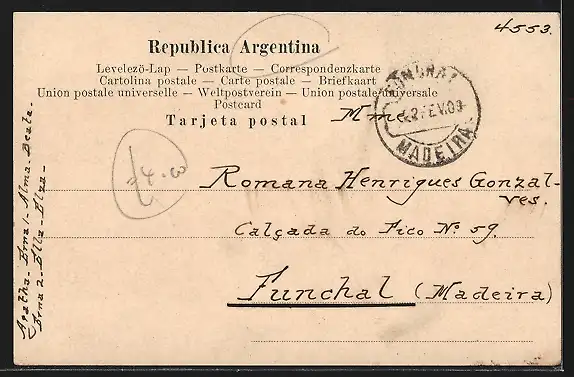 4553.
Republica Argentina
Levelezö-Lap — Postkarte — Correspondenzkarte
Cartolina postale — Carte postale — Briefkaart
Union postale universelle — Weltpostverein — Union postale universale
Postcard
Tarjeta postal
Mme
FUNCHAL
FEV.09
MADEIRA
Romana Henrigues Gonzal-
ves.
Calçada do Pico No 59.
Funchal (Madeira)
Agatha. Erna1. Alma. Beata.
Erna 2. Ella. Elza.